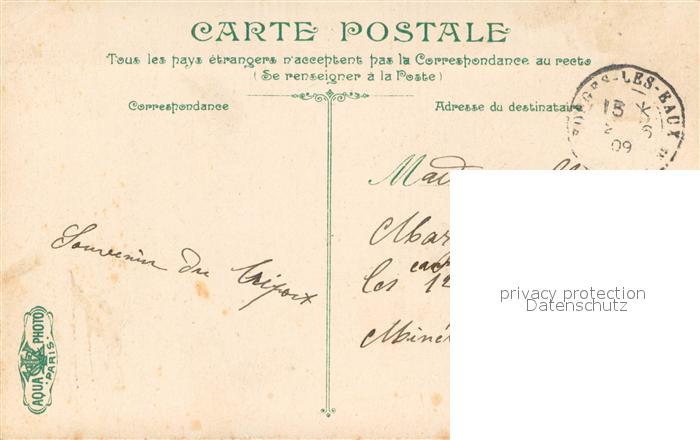 CARTE POSTALE
Tous les pays étrangers n'acceptent pas la Correspondance au recto
(Se renseigner à la Poste)
Correspondance
Adresse du destinataire
LES-EAUX
15
09
Souvenir du
Mad
Mar
les 12
Miné
privacy protection
Datenschutz
AQUA PHOTO
PARIS